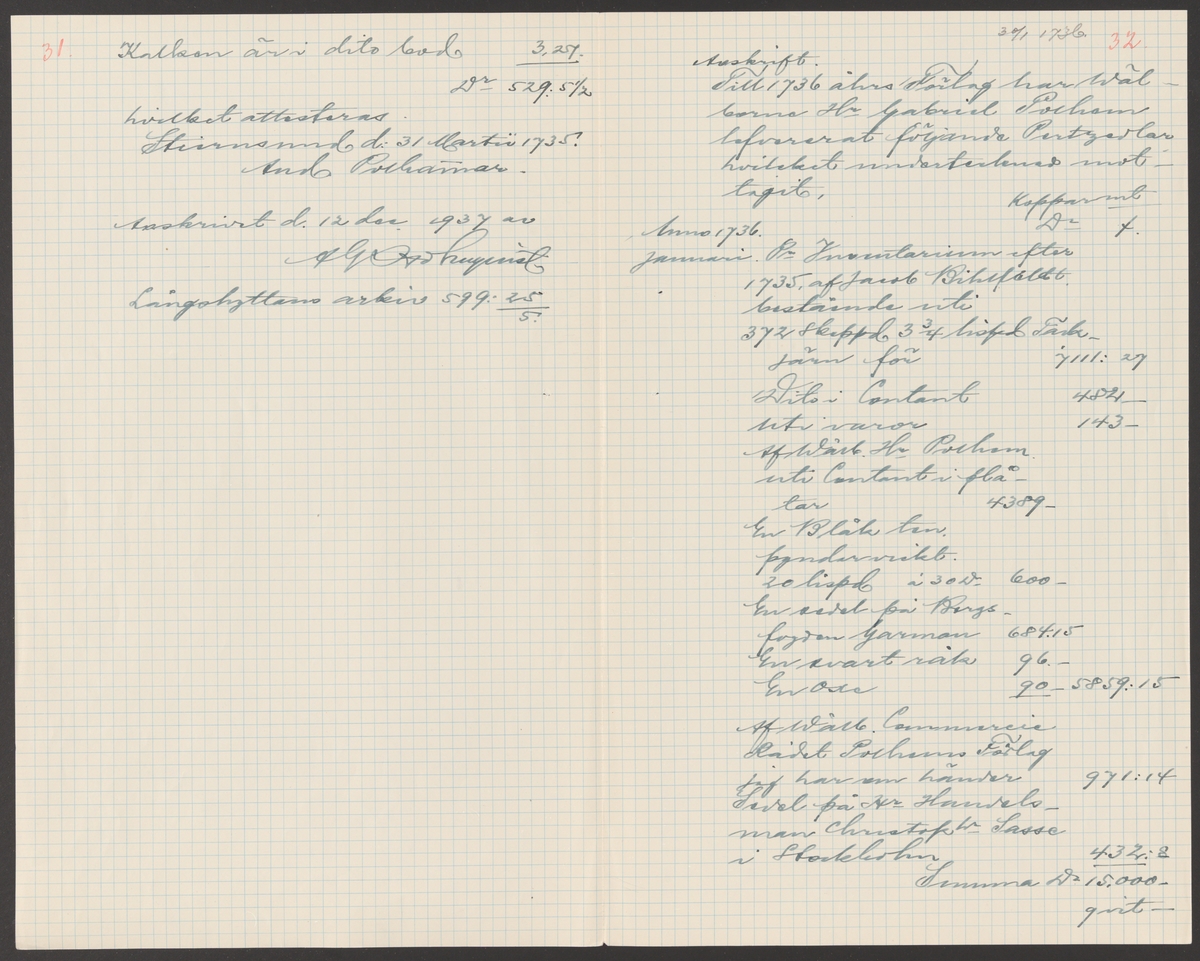 31.
Kalken är i dito bod 3,27.
Dr 529:5 1/2
hvilket attesteras.
Stiernsund d: 31 Martii 1735.
And Polhamar.
Avskrivit d. 12 dec. 1937 av
Långshyttans arkiv 599: 25/5.
1736. 32
Avskrift.
Till 1736 åhrs Förlag har Wäl-
borne Hr Gabriel Polhem
lefvererat följande Pertzedlar
hvilcket undertecknad mot-
tagit,
Koppar mt
Dr
Anno 1736.
Januari. Pr Inventarium efter
1735, af Jacob
bestående uti
372 Skeppd 3 3/4 lispd Täck-
järn för 7111: 27
Dito i Contant 482-
uti varor 143-
Af Wälb. Hr Polhem
uti Contant i plå-
tar 4389-
En Blåk ten.
pyndervickt.
20 lispd à 30 Dr 600-
En sedel på Bergs-
fogden Garman 684:15
En svart råk 96.-
En Oxe 90- 5859:15
Af Wälb. Commercie
Rådet Polhems Förlag
jag har om händer 971:14
Sedel på Hr Handels-
man Christoph Sasse
i Stockholm 432:8
Summa Dr 15,000-
qvit-